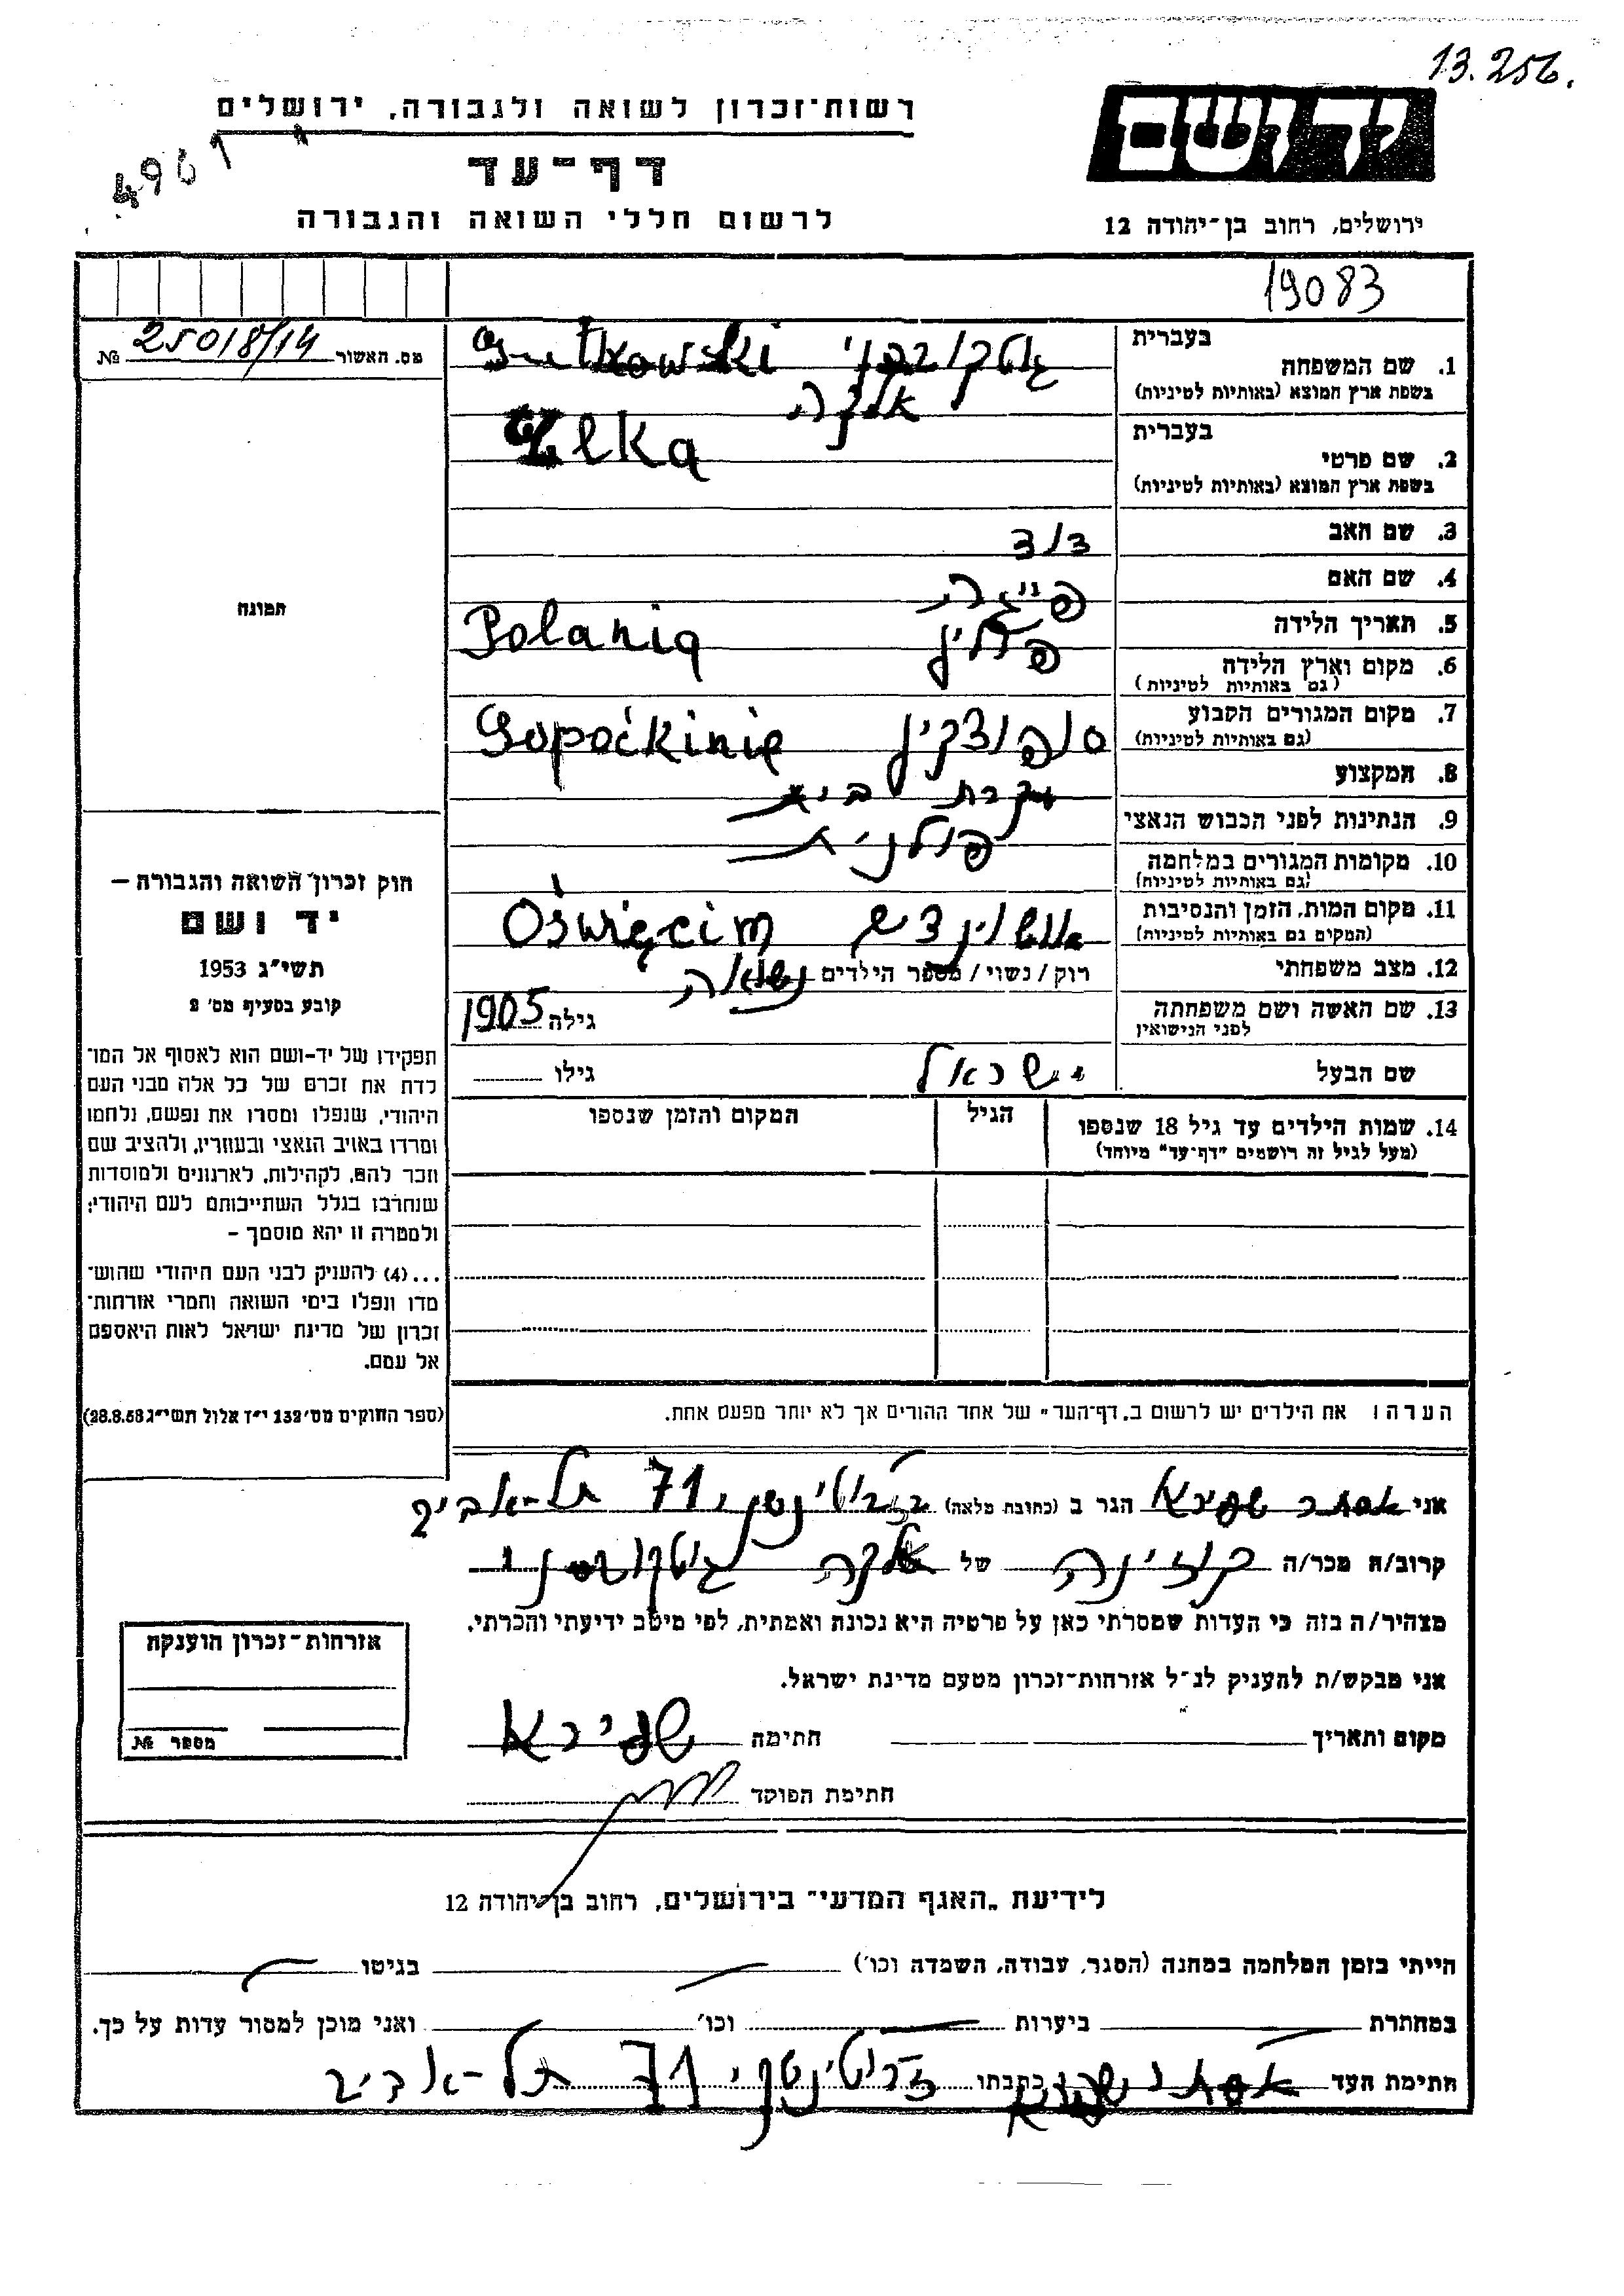 13.256.
רשות-זכרון לשואה ולגבורה, ירושלים
יד ושם
דף-עד
לרשום חללי השואה והגבורה
ירושלים, רחוב בן-יהודה 12
19083
מס. האשור 25018/14 №
בעברית
1. שם המשפחה
Gutkowski גוטקובסקי
בשפת ארץ המוצא (באותיות לטיניות)
בעברית אלקה
2. שם פרטי Elka
בשפת ארץ המוצא (באותיות לטיניות)
3. שם האב דוד
4. שם האם פייגה
תמונה
5. תאריך הלידה
6. מקום וארץ הלידה פולין Polania
(גם באותיות לטיניות)
7. מקום המגורים הקבוע סופוצקין Sopoćkinie
(גם באותיות לטיניות)
8. המקצוע עקרת בית
9. הנתינות לפני הכבוש הנאצי פולנית
10. מקומות המגורים במלחמה
(גם באותיות לטיניות)
11. מקום המות, הזמן והנסיבות אושוינצים Oświęcim
(המקום גם באותיות לטיניות)
12. מצב משפחתי רוק / נשוי / מספר הילדים נשואה
13. שם האשה ושם משפחתה גילה 1905
לפני הנישואין
שם הבעל ישראל גילו
14. שמות הילדים עד גיל 18 שנספו הגיל המקום והזמן שנספו
(מעל לגיל זה רושמים "דף-עד" מיוחד)
חוק זכרון השואה והגבורה –
יד ושם
תשי"ג 1953
קובע בסעיף מס' 2
תפקידו של יד-ושם הוא לאסוף אל המו־
לדת את זכרם של כל אלה מבני העם
היהודי, שנפלו ומסרו את נפשם, נלחמו
ומרדו באויב הנאצי ובעוזריו, ולהציב שם
וזכר להם, לקהילות, לארגונים ולמוסדות
שנחרבו בגלל השתייכותם לעם היהודי;
ולמטרה זו יהא מוסמך –
...(4) להעניק לבני העם היהודי שהוש־
מדו ונפלו בימי השואה והמרי אזרחות־
זכרון של מדינת ישראל לאות היאספם
אל עמם.
(ספר החוקים מס' 132 י"ז אלול תשי"ג 28.8.53)
הערה: את הילדים יש לרשום ב"דף-העד" של אחד ההורים אך לא יותר מפעם אחת.
אני אסתר שפירא הגר ב (כתובת מלאה) ז'בוטינסקי 71 תל-אביב
קרוב/ת מכר/ה קוזינה של אלקה גוטקובסקי
מצהיר/ה בזה כי העדות שמסרתי כאן על פרטיה היא נכונה ואמתית, לפי מיטב ידיעתי והכרתי.
אני מבקש/ת להעניק לנ"ל אזרחות-זכרון מטעם מדינת ישראל.
מקום ותאריך חתימה שפירא
חתימת הפוקד
אזרחות-זכרון הוענקה
מספר №
לידיעת "האגף המדעי" בירושלים, רחוב בן-יהודה 12
הייתי בזמן המלחמה במחנה (הסגר, עבודה, השמדה וכו') בגיטו
במחתרת ביערות וכו' ואני מוכן למסור עדות על כך.
חתימת העד אסתר שפירא כתבתו ז'בוטינסקי 71 תל-אביב